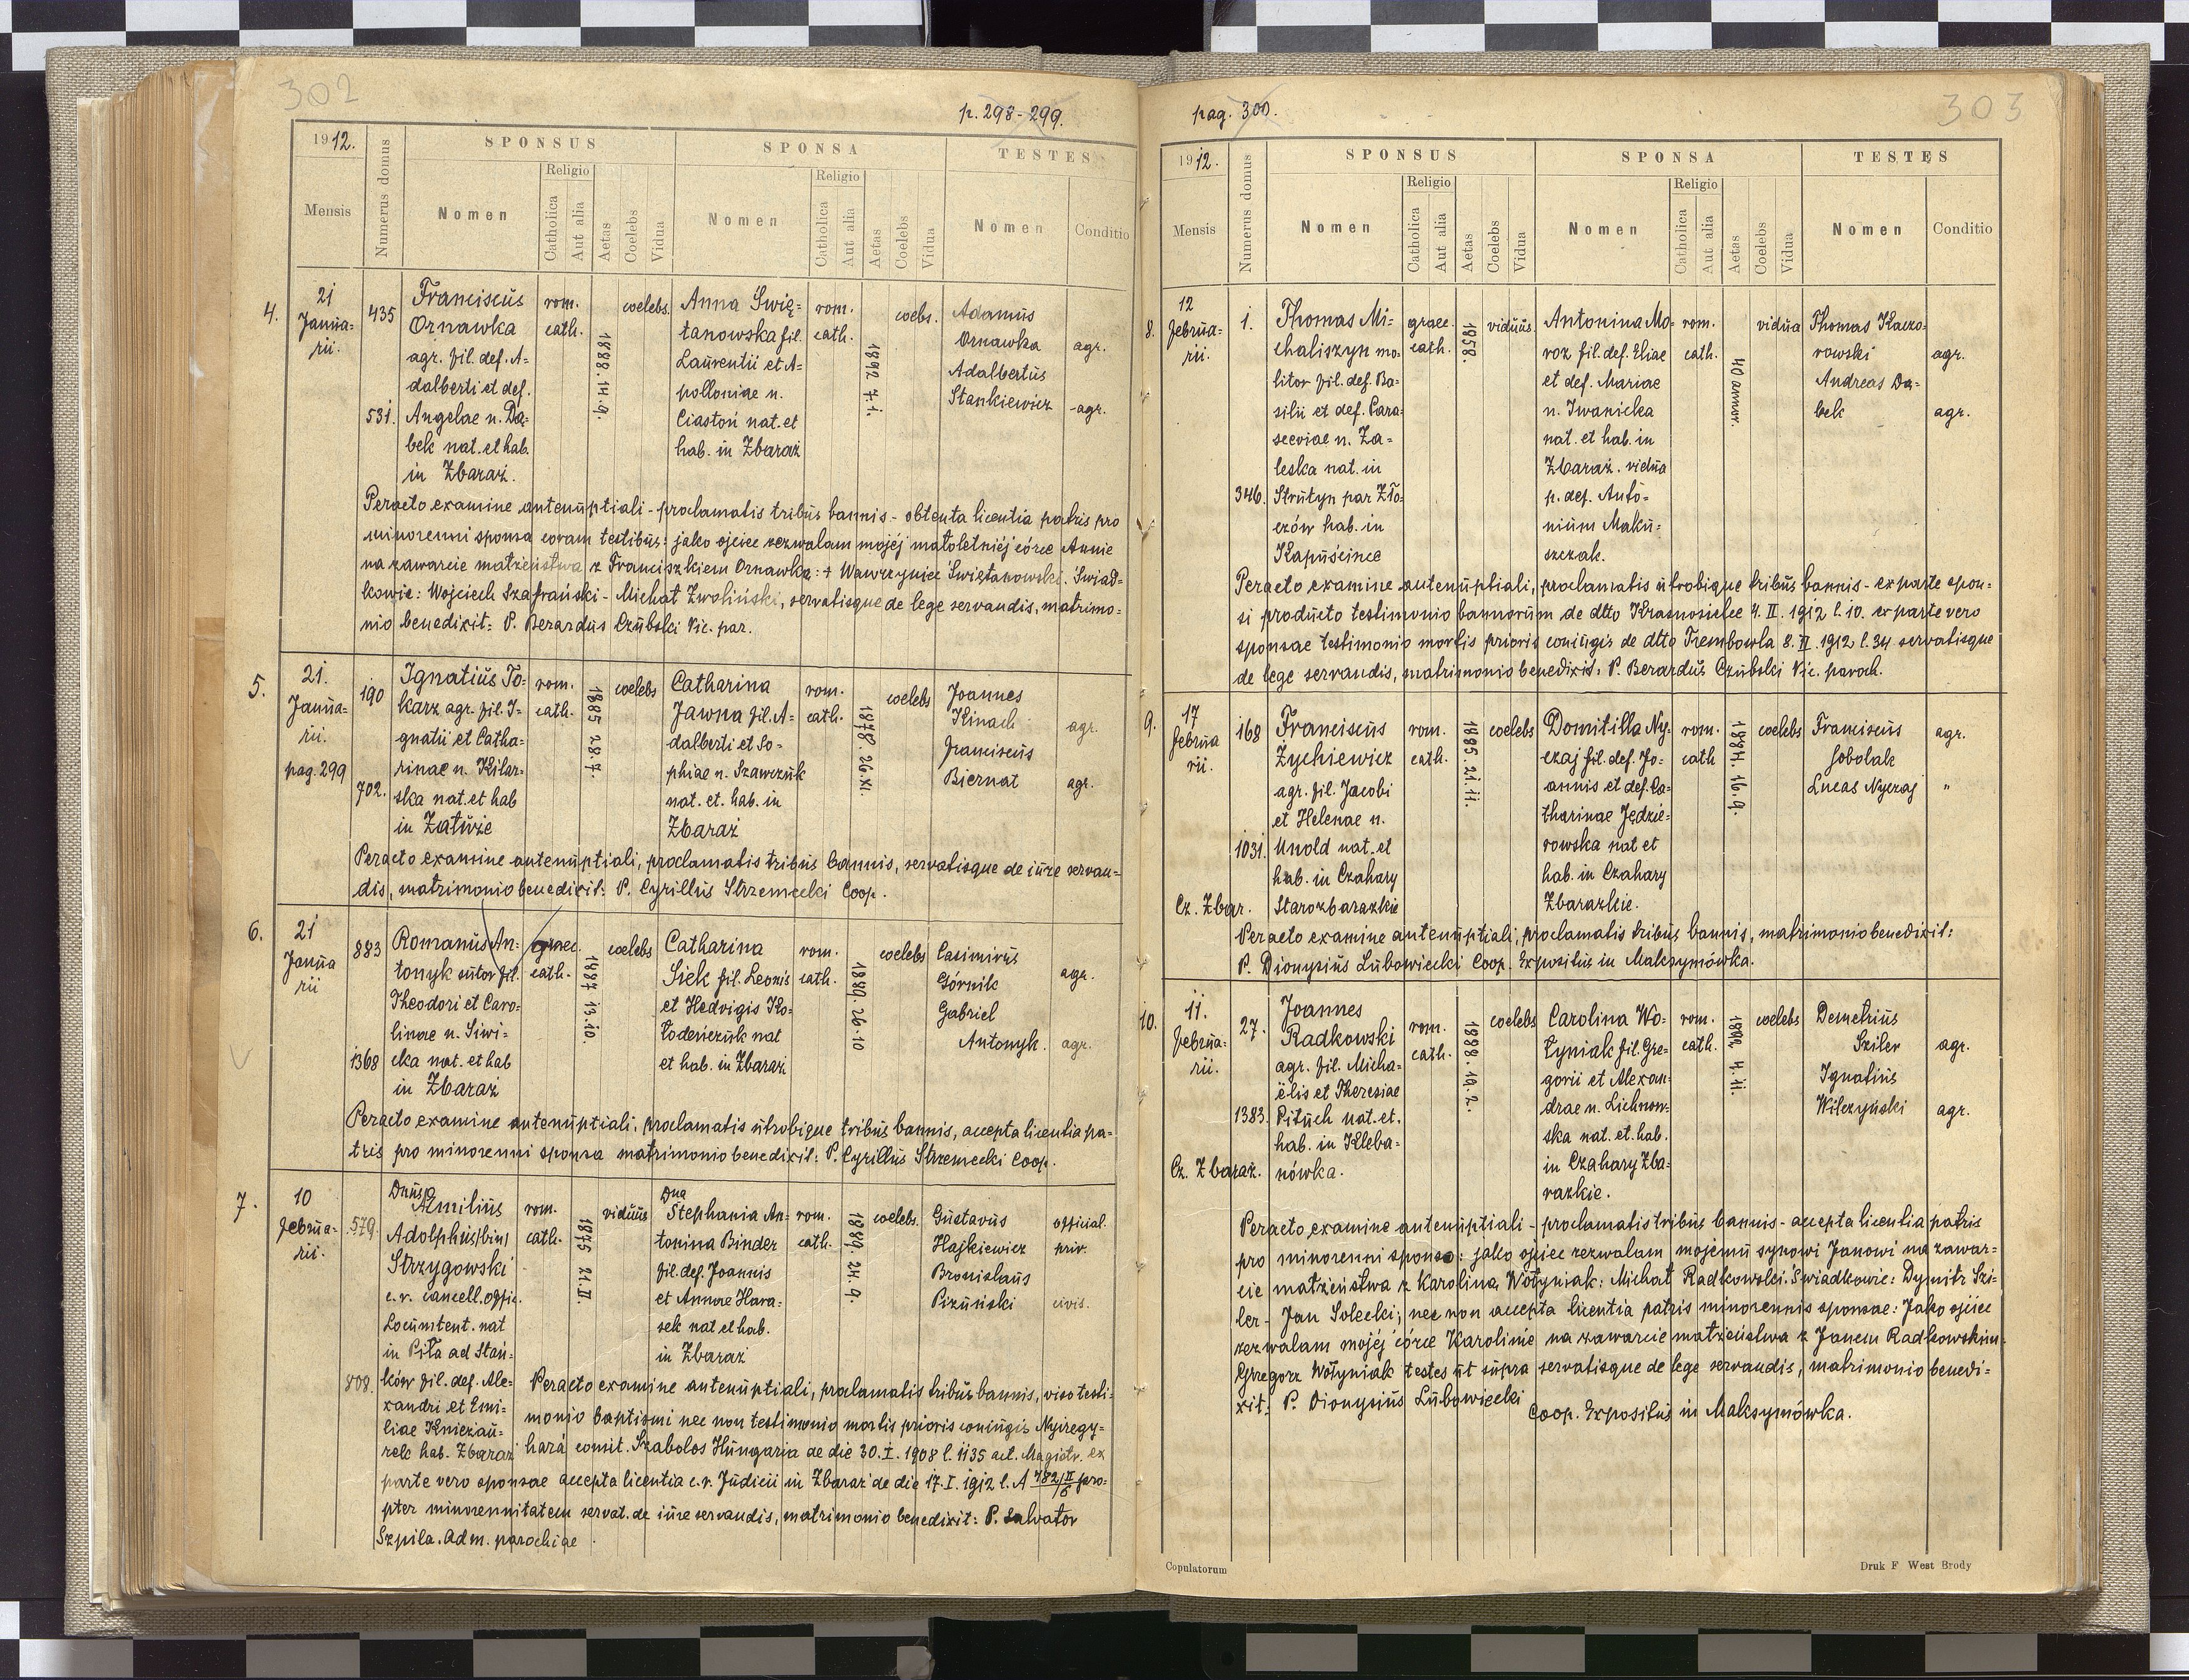 302
p. 298-299.
1912.
Mensis
Numerus domus
SPONSUS
Nomen
Religio
Catholica
Aut alia
Aetas
Coelebs
Vidua
SPONSA
Nomen
Religio
Catholica
Aut alia
Aetas
Coelebs
Vidua
TESTES
Nomen
Conditio
4.
21
Janua=
rii.
435
531.
Franciscus
Ornawka
agr. fil. def. A=
dalberti et def.
Angelae n. Dą=
bek nat. et hab.
in Zbaraż.
rom.
cath.
1888. 14.9.
coelebs.
Anna Świę=
tanowska fil.
Laurentii et A=
polloniae n.
Ciastoń nat. et
hab. in Zbaraż
rom.
cath.
1892. 7.1.
coebs.
Adamus
Ornawka
Adalbertus
Stankiewicz
agr.
-agr.
Peracto examine antenuptiali - proclamatis tribus bannis - obtenta licentia patris pro
minorenni sponsa coram testibus: jako ojciec zezwalam mojéj małoletniéj córce Annie
na zawarcie małżeństwa z Franciszkiem Ornawka: + Wawrzyniec Świętanowski. Świad=
kowie: Wojciech Szafrański - Michał Zwoliński, servatisque de lege servandis, matrimo=
nio benedixit: P. Berardus Czubski Vic. par.
5.
21.
Janua=
rii.
pag. 299
190
702.
Ignatius To=
karz agr. fil. I=
gnatii et Catha=
rinae n. Kilar=
ska nat. et hab
in Załuże
rom.
cath.
1885 28.7.
coelebs
Catharina
Jawna fil. A=
dalberti et So=
phiae n. Szawczuk
nat. et. hab. in
Zbaraż
rom.
cath.
1878. 26.XI.
coelebs
Joannes
Kinach
Franciscus
Biernat
agr.
agr.
Peracto examine antenuptiali, proclamatis tribus bannis, servatisque de iure servan=
dis, matrimonio benedixit: P. Cyrillus Strzemecki Coop.
6.
21
Janua
rii
883
1368
Romanus An=
tonyk sutor fil.
Theodori et Caro=
linae n. Siwi=
cka nat. et hab
in Zbaraż
graec
cath.
1887 13.10.
coelebs
Catharina
Siek fil. Leonis
et Hedvigis Ko=
łodeńczuk nat
et hab. in Zbaraż
rom.
cath.
1889. 26.10
coelebs
Casimirus
Górnik
Gabriel
Antonyk.
agr.
agr.
Peracto examine antenuptiali, proclamatis utrobique tribus bannis, accepta licentia pa=
tris pro minorenni sponsa matrimonio benedixit: P. Cyrillus Strzemecki Coop.
7.
10
Februa=
rii.
579.
808.
Dnus
Aemilius
Adolphus (bin)
Strzygowski
c.r. cancell. offic.
Locumtent. nat
in Piła ad Stań=
ków fil. def. Ale=
xandri et Emi=
liae Kniezau=
rek hab. Zbaraż
rom.
cath.
1875 21.II.
viduus
Dna
Stephania An=
tonina Binder
fil. def. Joannis
et Annae Hara=
sek nat et hab.
in Zbaraż
rom.
cath.
1889. 24.9.
coelebs.
Gustavus
Hajkiewicz
Bronislaus
Pizuński
official.
priv.
civis.
Peracto examine antenuptiali, proclamatis tribus bannis, viso testi=
monio baptismi nec non testimonio mortis prioris coniugis Nyiregy=
hará comit. Szabolos Hungaria de die 30.I. 1908 l. 1135 act. Magistr. ex
parte vero sponsae accepta licentia c.r. Judicii in Zbaraż de die 17.I. 1912 l. A 782/II/6 pro=
pter minorennitatem servat. de iure servandis, matrimonio benedixit: P. Salvator
Szpila. Adm. parochiae
303
pag. 300.
1912.
Mensis
Numerus domus
SPONSUS
Nomen
Religio
Catholica
Aut alia
Aetas
Coelebs
Vidua
SPONSA
Nomen
Religio
Catholica
Aut alia
Aetas
Coelebs
Vidua
TESTES
Nomen
Conditio
8.
12
Februa=
rii.
1.
346.
Thomas Mi=
chaliszyn mo=
litor fil. def. Ba=
silii et def. Para=
sceviae n. Za=
leska nat. in
Strutyn par Zło=
czów hab. in
Kapuścińce
graec.
cath.
1858.
viduus.
Antonina Mo=
roz fil. def. Eliae
et def. Mariae
n. Iwanicka
nat. et hab. in
Zbaraż. vidua
p. def. Anto=
nium Maku=
szczak.
rom.
cath.
40 annor.
vidua
Thomas Kaczo=
rowski
Andreas Dą=
bek
agr.
agr.
Peracto examine antenuptiali, proclamatis utrobique tribus bannis - ex parte spon=
si producto testimonio bannorum de dtto Krasnosielce 4.II. 1912 l. 10. ex parte vero
sponsae testimonio mortis prioris coniugis de dtto Trembowla 8.II. 1912 l. 34 servatisque
de lege servandis, matrimonio benedixit: P. Berardus Czubski Vic. paroch.
9.
17
Februa
rii.
168
1031.
Cz. Zbar.
Franciscus
Żychiewicz
agr. fil. Jacobi
et Helenae n.
Unold nat. et
hab. in Czahary
Starozbarazkie
rom.
cath.
1885. 21.11.
coelebs
Domitilla Ny=
czaj fil. def. Jo=
annis et def. Ca=
tharinae Jędzie=
rowska nat et
hab. in Czahary
Zbarazkie.
rom.
cath
1884. 16.9.
coelebs
Franciscus
Sobolak
Lucas Nyczaj
agr.
"
Peracto examine antenuptiali, proclamatis tribus bannis, matrimonio benedixit:
P. Dionysius Lubowiecki Coop. Expositus in Maksymówka.
10.
11.
Februa=
rii.
27.
1383.
Cz. Zbaraż.
Joannes
Radkowski
agr. fil. Micha=
ëlis et Theresiae
Pituch nat. et.
hab. in Kleba=
nówka.
rom.
cath.
1888. 19.2.
coelebs
Carolina Wo=
łyniak fil. Gre=
gorii et Alexan=
drae n. Lichnow=
ska nat. et. hab.
in Czahary Zba=
razkie.
rom.
cath.
1892 4.11.
coelebs
Demetrius
Sziler
Ignatius
Wilczyński
agr.
agr.
Peracto examine antenuptiali - proclamatis tribus bannis - accepta licentia patris
pro minorenni sponso: jako ojciec zezwalam mojemu synowi Janowi na zawar=
cie małżeństwa z Karoliną Wołyniak: Michał Radkowski. Świadkowie: Dymitr Szi=
ler - Jan Solecki; nec non accepta licentia patris minorennis sponsae: Jako ojciec
zezwalam mojéj córce Karolinie na zawarcie małżeństwa z Janem Radkowskim
Grzegorz Wołyniak testes ut supra servatisque de lege servandis, matrimonio benedi=
xit: P. Dionysius Lubowiecki
Coop. Expositus in Maksymówka.
Copulatorum
Druk F West Brody